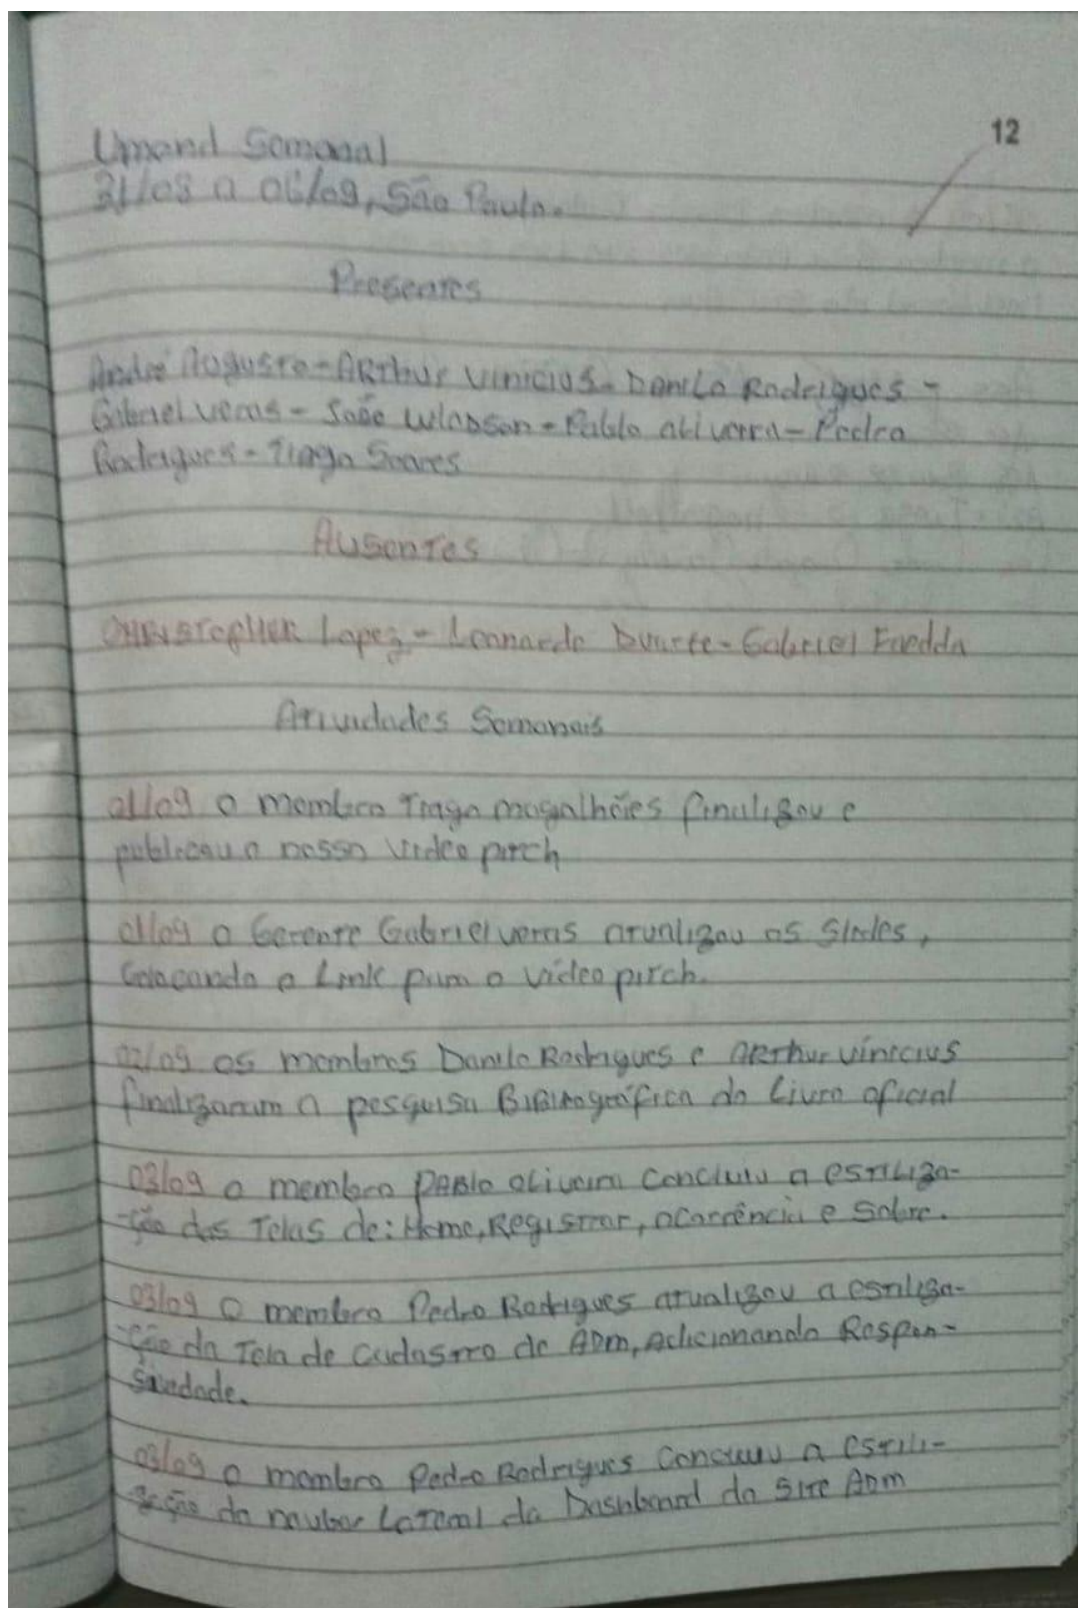 12
Umand Semanal
31/08 a 06/09, São Paulo.
Presentes
André Augusto - ARthur Vinicius - Danilo Rodrigues -
Gabriel Veras - João Wlabson - Pablo oliveira - Pedro
Rodrigues - Tiago Soares
Ausentes
CHRISTOPHER Lopez - Leonardo Duarte - Gabriel Faedda
Atividades Semanais
01/09 O membro Tiago magalhães finalizou e
publicou o nosso Vídeo pitch
01/09 o Gerente Gabriel veras atualizou os Slides,
Colocando o Link para o vídeo pitch.
02/09 os membros Danilo Rodrigues e ARThur vinicius
finalizaram a pesquisa Bibliográfica do Livro oficial
03/09 o membro PABlo oliveira Concluiu a estiliza-
-ção das Telas de: Home, Registrar, ocorrência e Sobre.
03/09 O membro Pedro Rodrigues atualizou a estiliza-
-ção da Tela de Cadastro de ADm, Adicionando Respon-
sividade.
03/09 o membro Pedro Rodrigues Concluiu a estili-
zação da navbar Lateral da Dashboard do Site ADm